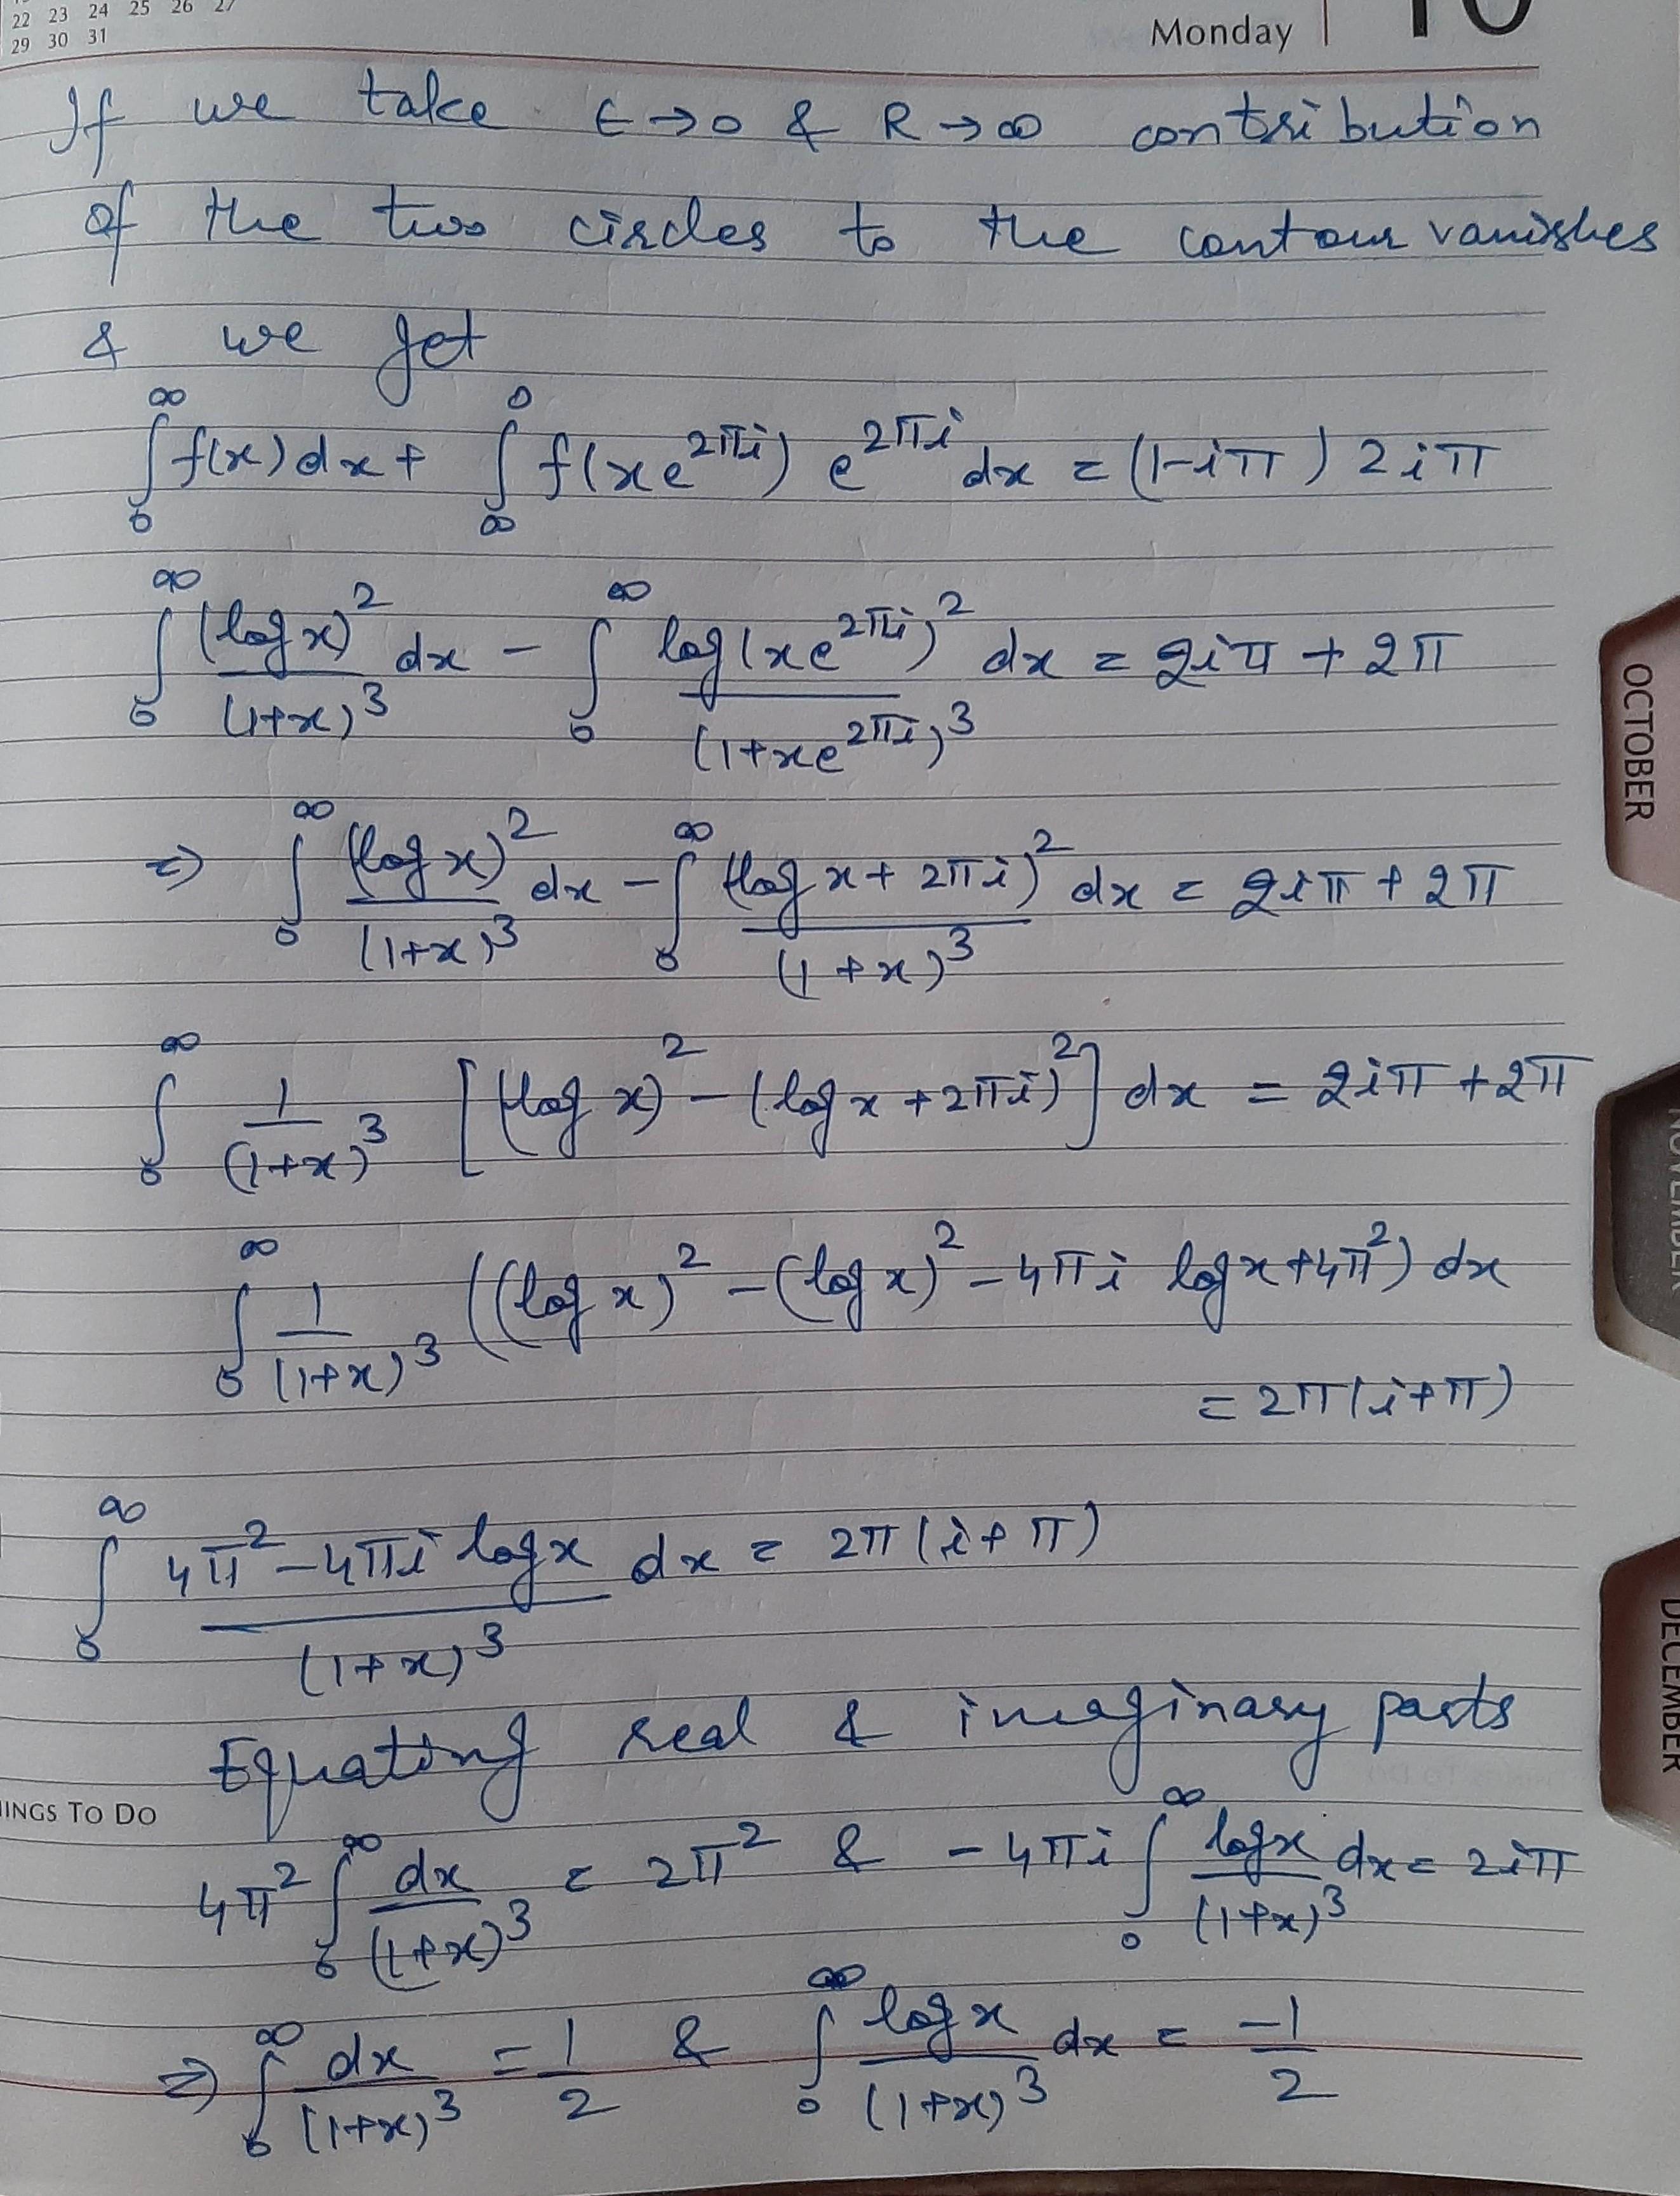 22 23 24 25 26 27
29 30 31
Monday | 10
If we take ϵ→0 & R→∞ contribution
of the two circles to the contour vanishes
& we get
∫₀^∞ f(x)dx + ∫_∞^0 f(xe^{2πi}) e^{2πi} dx = (1-iπ) 2iπ
∫₀^∞ (log x)²/(1+x)³ dx - ∫₀^∞ log(xe^{2πi})²/(1+xe^{2πi})³ dx = 2iπ + 2π
⇒ ∫₀^∞ (log x)²/(1+x)³ dx - ∫₀^∞ (log x + 2πi)²/(1+x)³ dx = 2iπ + 2π
∫₀^∞ 1/(1+x)³ [(log x)² - (log x + 2πi)²] dx = 2iπ + 2π
∫₀^∞ 1/(1+x)³ ((log x)² - (log x)² - 4πi log x + 4π²) dx
= 2π(i+π)
∫₀^∞ (4π² - 4πi log x)/(1+x)³ dx = 2π(i+π)
Equating real & imaginary parts
4π² ∫₀^∞ dx/(1+x)³ = 2π² & -4πi ∫₀^∞ log x/(1+x)³ dx = 2iπ
⇒ ∫₀^∞ dx/(1+x)³ = 1/2 & ∫₀^∞ log x/(1+x)³ dx = -1/2
INGS TO DO
OCTOBER
NOVEMBER
DECEMBER